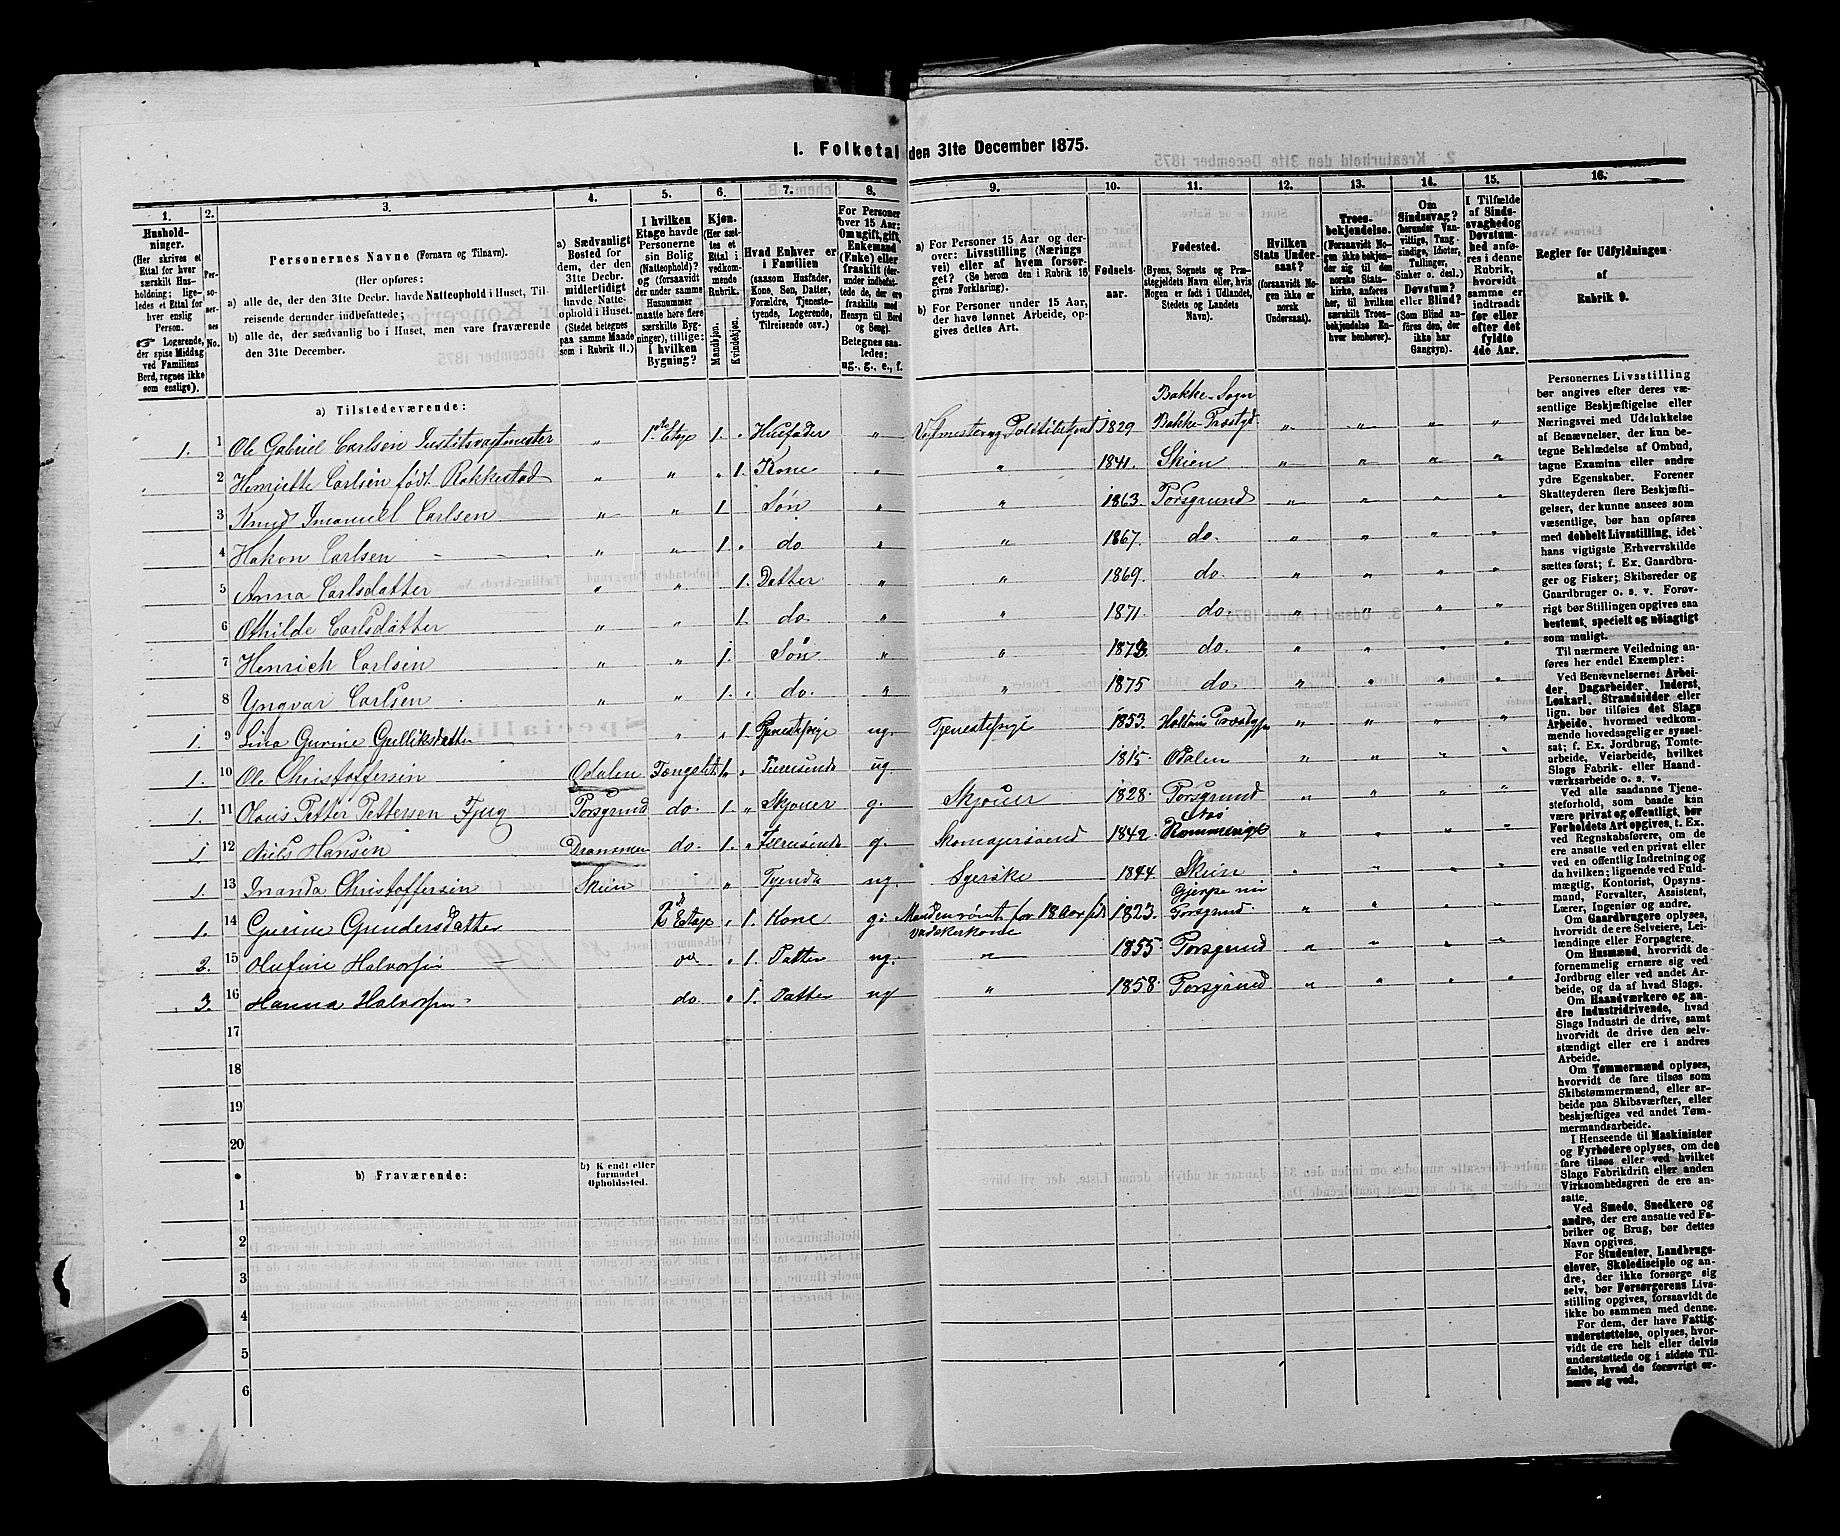 I. Folketal den 31te December 1875.
1.
Husholdninger.
(Her skrives et
Ettal for hver
særskilt Husholdning; ligeledes et Ettal for
hver enslig
Person.
☞ Logerende,
der spise Middag
ved Familiens
Bord, regnes ikke
som enslige).
2.
Personernes
No.
3.
Personernes Navne (Fornavn og Tilnavn).
(Her opføres:
a) alle de, der den 31te Decbr. havde Natteophold i Huset, Tilreisende derunder indbefattede;
b) alle de, der sædvanlig bo i Huset, men vare fraværende
den 31te December.
4.
a) Sædvanligt
Bosted for
dem, der den
31te Decbr.
midlertidigt
havde Natteophold i Huset.
(Stedet betegnes
paa samme Maade
som i Rubrik 11.)
5.
I hvilken
Etage havde
Personerne
sin Bolig
(Natteophold)?
(forsaavidt
der under samme
Husnummer
maatte høre flere
særskilte Bygninger), tillige:
i hvilken
Bygning?
6.
Kjøn.
(Her sættes et
Ettal i
vedkommende
Rubrik.
Mandskjøn.
Kvindekjøn.
7.
Hvad Enhver er
i Familien
(saasom Husfader,
Kone, Søn, Datter,
Forældre, Tjenestetyende, Logerende,
Tilreisende osv.)
8.
For Personer
over 15 Aar:
Om ugift, gift,
Enkemand
(Enke) eller
fraskilt (derunder indbefattede de, der ere
fraskilte med
Hensyn til Bord
og Seng).
Betegnes saaledes:
ug., g., e., f.
9.
a) For Personer 15 Aar og derover: Livsstilling (Næringsvei) eller af hvem forsørget? (Se herom den i Rubrik 16
givne Forklaring).
b) For Personer under 15 Aar,
der have lønnet Arbeide, opgives dettes Art.
10.
Fødselsaar.
11.
Fødested.
(Byens, Sognets og Præstegjeldets Navn eller, hvis
Nogen er født i Udlandet,
Stedets og Landets
Navn).
12.
Hvilken
Stats Undersaat?
(forsaavidt Nogen ikke er
norsk
Undersaat).
13.
Troesbekjendelse.
(Forsaavidt Nogen ikke bekjender sig til den
norske Statskirke, anføres
her, til hvilken
særskilt Troesbekjendelse Enhver henhører).
14.
Om
Sindssvag?
(herunder Vanvittige, Tungsindige, Idioter,
Tullinger,
Sinker o. desl.)
Døvstum?
eller Blind?
(Som Blind anføres den, der
ikke har
Gangsyn).
15.
I Tilfælde
af Sindssvaghed og
Døvstumhed anføres i denne
Rubrik,
hvorvidt
samme er
indtraadt
før eller
efter det
fyldte
4de Aar.
16.
Regler for Udfyldningen
af
Rubrik 9.
a) Tilstedeværende:
Bakke-Sogn
1. 1 Ole Gabriel Carlsen " 1ste Etage 1. " Husfader " 1829 Bakke " " " "
2 Henriette Carlsen født Rakkestad " " " 1. Kone " " 1841. Skien " " " "
3 Knud Imanuel Carlsen " " 1 Søn " " 1863. Porsgrund " " " "
4 Hakon Carlsen " " 1. " do. " " 1867. do. " " " "
5 Anna Carlsdatter " " 1. Datter " " 1869. do. " " " "
6 Othilde Carlsdatter " " 1. do. " " 1871. do. " " " "
7 Henrich Carlsen " " 1. Søn " " 1873. do. " " " "
8 Yngvar Carlsen " " 1. " do. " " 1875 do. " " " "
1. 9 Lina Gurine Gulliksdatter " " 1 Tjenestepige ug. Tjenestepige 1853. " " " "
1. 10 Ole Christoffersen Odalen 1. " ug 1815 Odalen " " " "
1. 11 Olaus Petter Pettersen Porsgrund do. 1. " Skjøuer g. Skjøuer 1828. Porsgrund " " " "
1 12 Niels Hansen Drammen do. 1. " g. 1842 " " " "
1. 13 Christoffersen Skien " Tjende ug. Syerske 1844 Skien " " "
1. 14 Gurine Gundersdatter 2 Etage " 1. Kone g. 1823. Porsgrund " " " "
2. 15 Olufine Halvorsen do " 1. Datter ug. " 1855 Porsgrund " " " "
3. 16 Hanna Halvorsen do. " 1. Datter ug " 1858. Porsgrund " " " "
17
18
19
20
b) Fraværende:
b) Kjendt eller
formodet
Opholdssted.
1
2
3
4
5
6
Personernes Livsstilling
bør angives efter deres væsentlige Beskjæftigelse eller
Næringsvei med Udelukkelse
af Benævnelser, der kun betegne Beklædelse af Ombud,
tagne Examina eller andre
ydre Egenskaber. Forener
Skatteyderen flere Beskjæftigelser, der kunne ansees som
væsentlige, bør han opføres
med dobbelt Livsstilling, idet
hans vigtigste Erhvervskilde
sættes først; f. Ex. Gaardbruger og Fisker; Skibsreder og
Gaardbruger o. s. v. Forøvrigt bør Stillingen opgives saa
bestemt, specielt og nøiagtigt
som muligt.
Til nærmere Veiledning anføres her endel Exempler:
Ved Benævnelserne: Arbeider, Dagarbeider, Inderst,
Løskarl, Strandsidder eller
lign. bør tilføies det Slags
Arbeide, hvormed vedkommende hovedsagelig er sysselsat; f. Ex. Jordbrug, Tomtearbeide, Veiarbeide, hvilket
Slags Fabrik- eller Haandværksarbeide o. s. v.
Ved alle saadanne Tjenesteforhold, som baade kan
være privat og offentligt, bør
Forholdets Art opgives, t. Ex.
ved Regnskabsførere, om de
ere ansatte ved en privat eller
ved en offentlig Indretning og
da hvilken; lignende ved Fuldmægtig, Kontorist, Opsynsmand, Forvalter, Assistent,
Lærer, Ingeniør og andre.
Om Gaardbrugere oplyses,
hvorvidt de ere Selveiere, Leilændinge eller Forpagtere.
Om Husmænd, hvorvidt de
fornemmelig ernære sig ved
Jordbrug eller ved andet Arbeide, og da af hvad Slags.
Om Haandværkere og andre Industridrivende, hvad
Slags Industri de drive, samt
hvorvidt de drive den selvstændigt eller ere i andres
Arbeide.
Om Tømmermænd oplyses,
hvorvidt de fare tilsøs som
Skibstømmermænd, eller arbeide paa Skibsværfter, eller
beskjæftiges ved andet Tømmermandsarbeide.
I Henseende til Maskinister
og Fyrbødere oplyses, om de
fare tilsøs eller ved hvilket
Slags Fabrikdrift eller anden
Virksomhedsgren de ere ansatte.
Ved Smede, Snedkere og
andre, der ere ansatte ved Fabriker og Brug, bør dettes
Navn opgives.
For Studenter, Landbrugselever, Skoledisciple og andre, der ikke forsørge sig
selv, bør Forsørgerens Livsstilling opgives, forsaavidt de
ikke bo sammen med denne.
For dem, der have Fattigunderstøttelse, oplyses, hvorvidt de ere helt eller delvis
understøttede og i sidste Tilfælde, hvad de forøvrigt ernære sig ved.